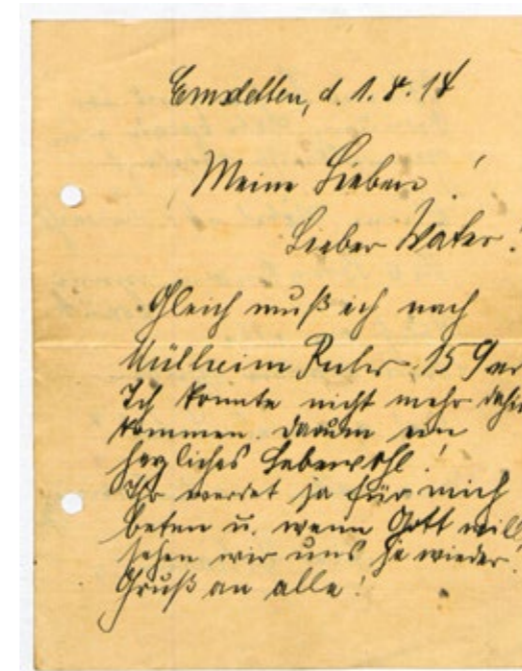 Emsdetten, d. 1.8.14
Meine Lieben!
Lieber Vater!
Gleich muß ich nach
Mülheim Ruhr 159er
Ich konnte nicht mehr dahin
kommen. Darum ein
herzliches Lebewohl!
Ihr werdet ja für mich
beten u. wenn Gott will,
sehen wir uns ja wieder!
Gruß an alle!